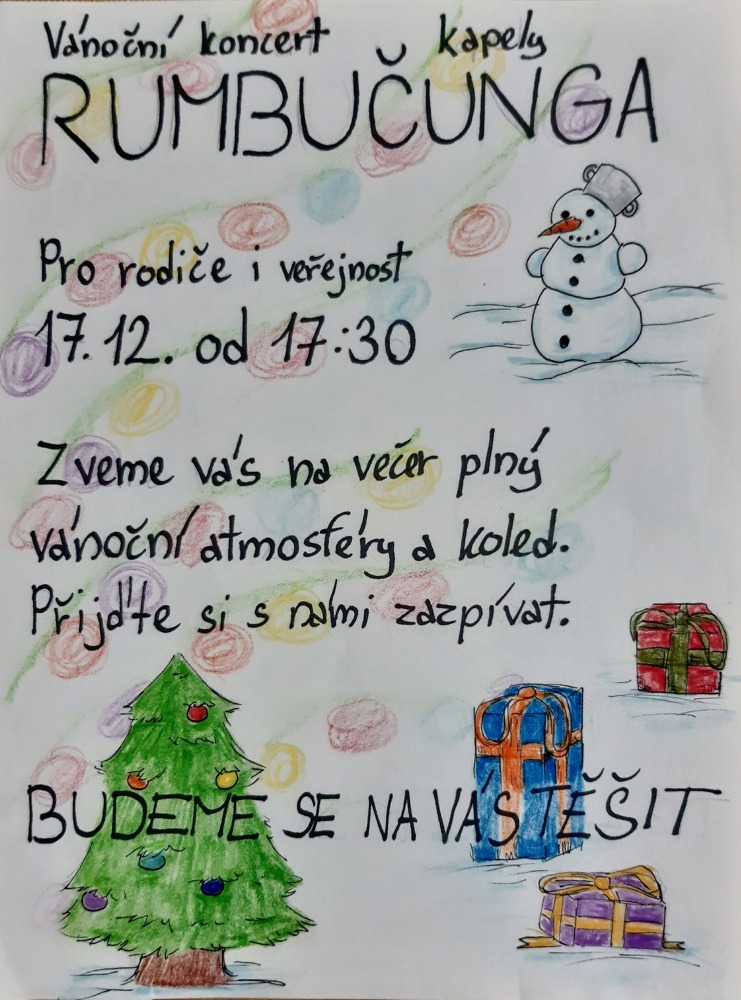 Vánoční koncert kapely
RUMBUČUNGA
Pro rodiče i veřejnost
17. 12. od 17:30
Zveme vás na večer plný
vánoční atmosféry a koled.
Přijďte si s námi zazpívat.
BUDEME SE NA VÁS TĚŠIT